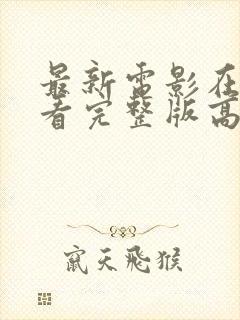 最新雷影在
看完整版高
窜天飛猴